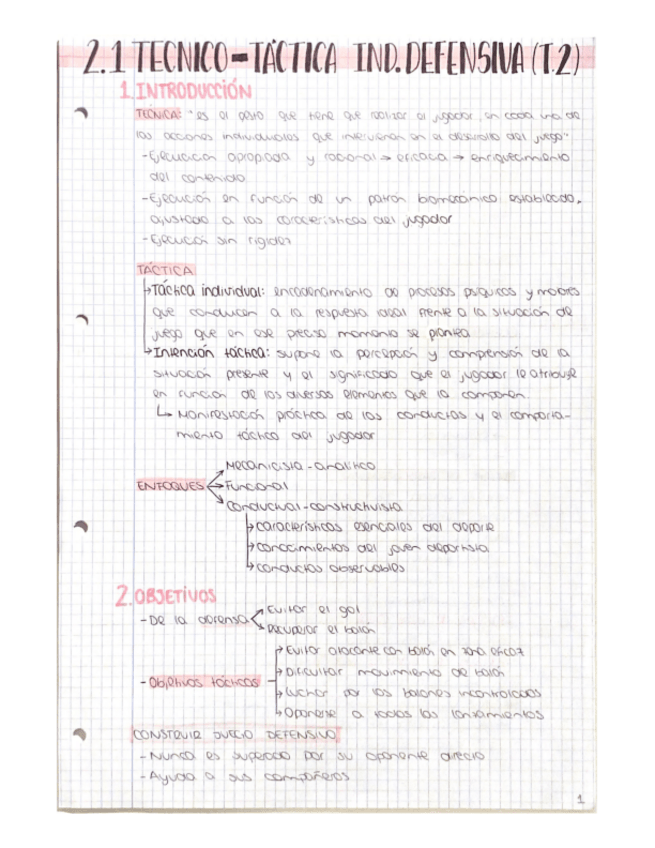 2.1 TECNICO-TÁCTICA IND. DEFENSIVA (T.2)
1. INTRODUCCIÓN
TECNICA: "es el gesto que tiene que realizar el jugador en cada una de
las acciones individuales que intervienen en el desarrollo del juego"
-Ejecución apropiada y racional → eficacia → enriquecimiento
del contenido
-Ejecución en función de un patrón biomecánico establecido,
ajustado a las características del jugador
-Ejecución sin rigidez
TÁCTICA
↳Táctica individual: encadenamiento de procesos psíquicos y motores
que conducen a la respuesta ideal frente a la situación de
juego que en ese preciso momento se plantea
↳Intención táctica: supone la percepción y comprensión de la
situación presente y el significado que el jugador le atribuye
en función de los diversos elementos que la componen.
↳ Manifestación práctica de las conductas y el comporta-
miento táctico del jugador
Mecanicista-analítico
ENFOQUES Funcional
Conductual-constructivista
↳características esenciales del deporte
↳conocimientos del joven deportista
↳conductas observables
2. OBJETIVOS
-De la defensa Evitar el gol
Recuperar el balón
Evitar atacante con balón en zona eficaz
-Objetivos tácticos Dificultar movimiento de balón
Luchar por los balones incontrolados
Oponerse a todos los lanzamientos
CONSTRUIR JUEGO DEFENSIVO
-Nunca es superado por su oponente directo
-Ayuda a sus compañeros
1